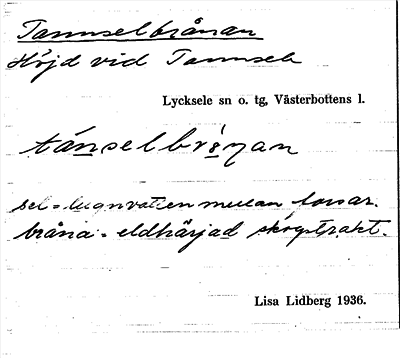 Tannselbrånan
Höjd vid Tannsele
Lycksele sn o. tg, Västerbottens l.
tánselbrö́nan
sel = lugnvatten mellan forsar.
bråna = eldhärjad skogstrakt.
Lisa Lidberg 1936.